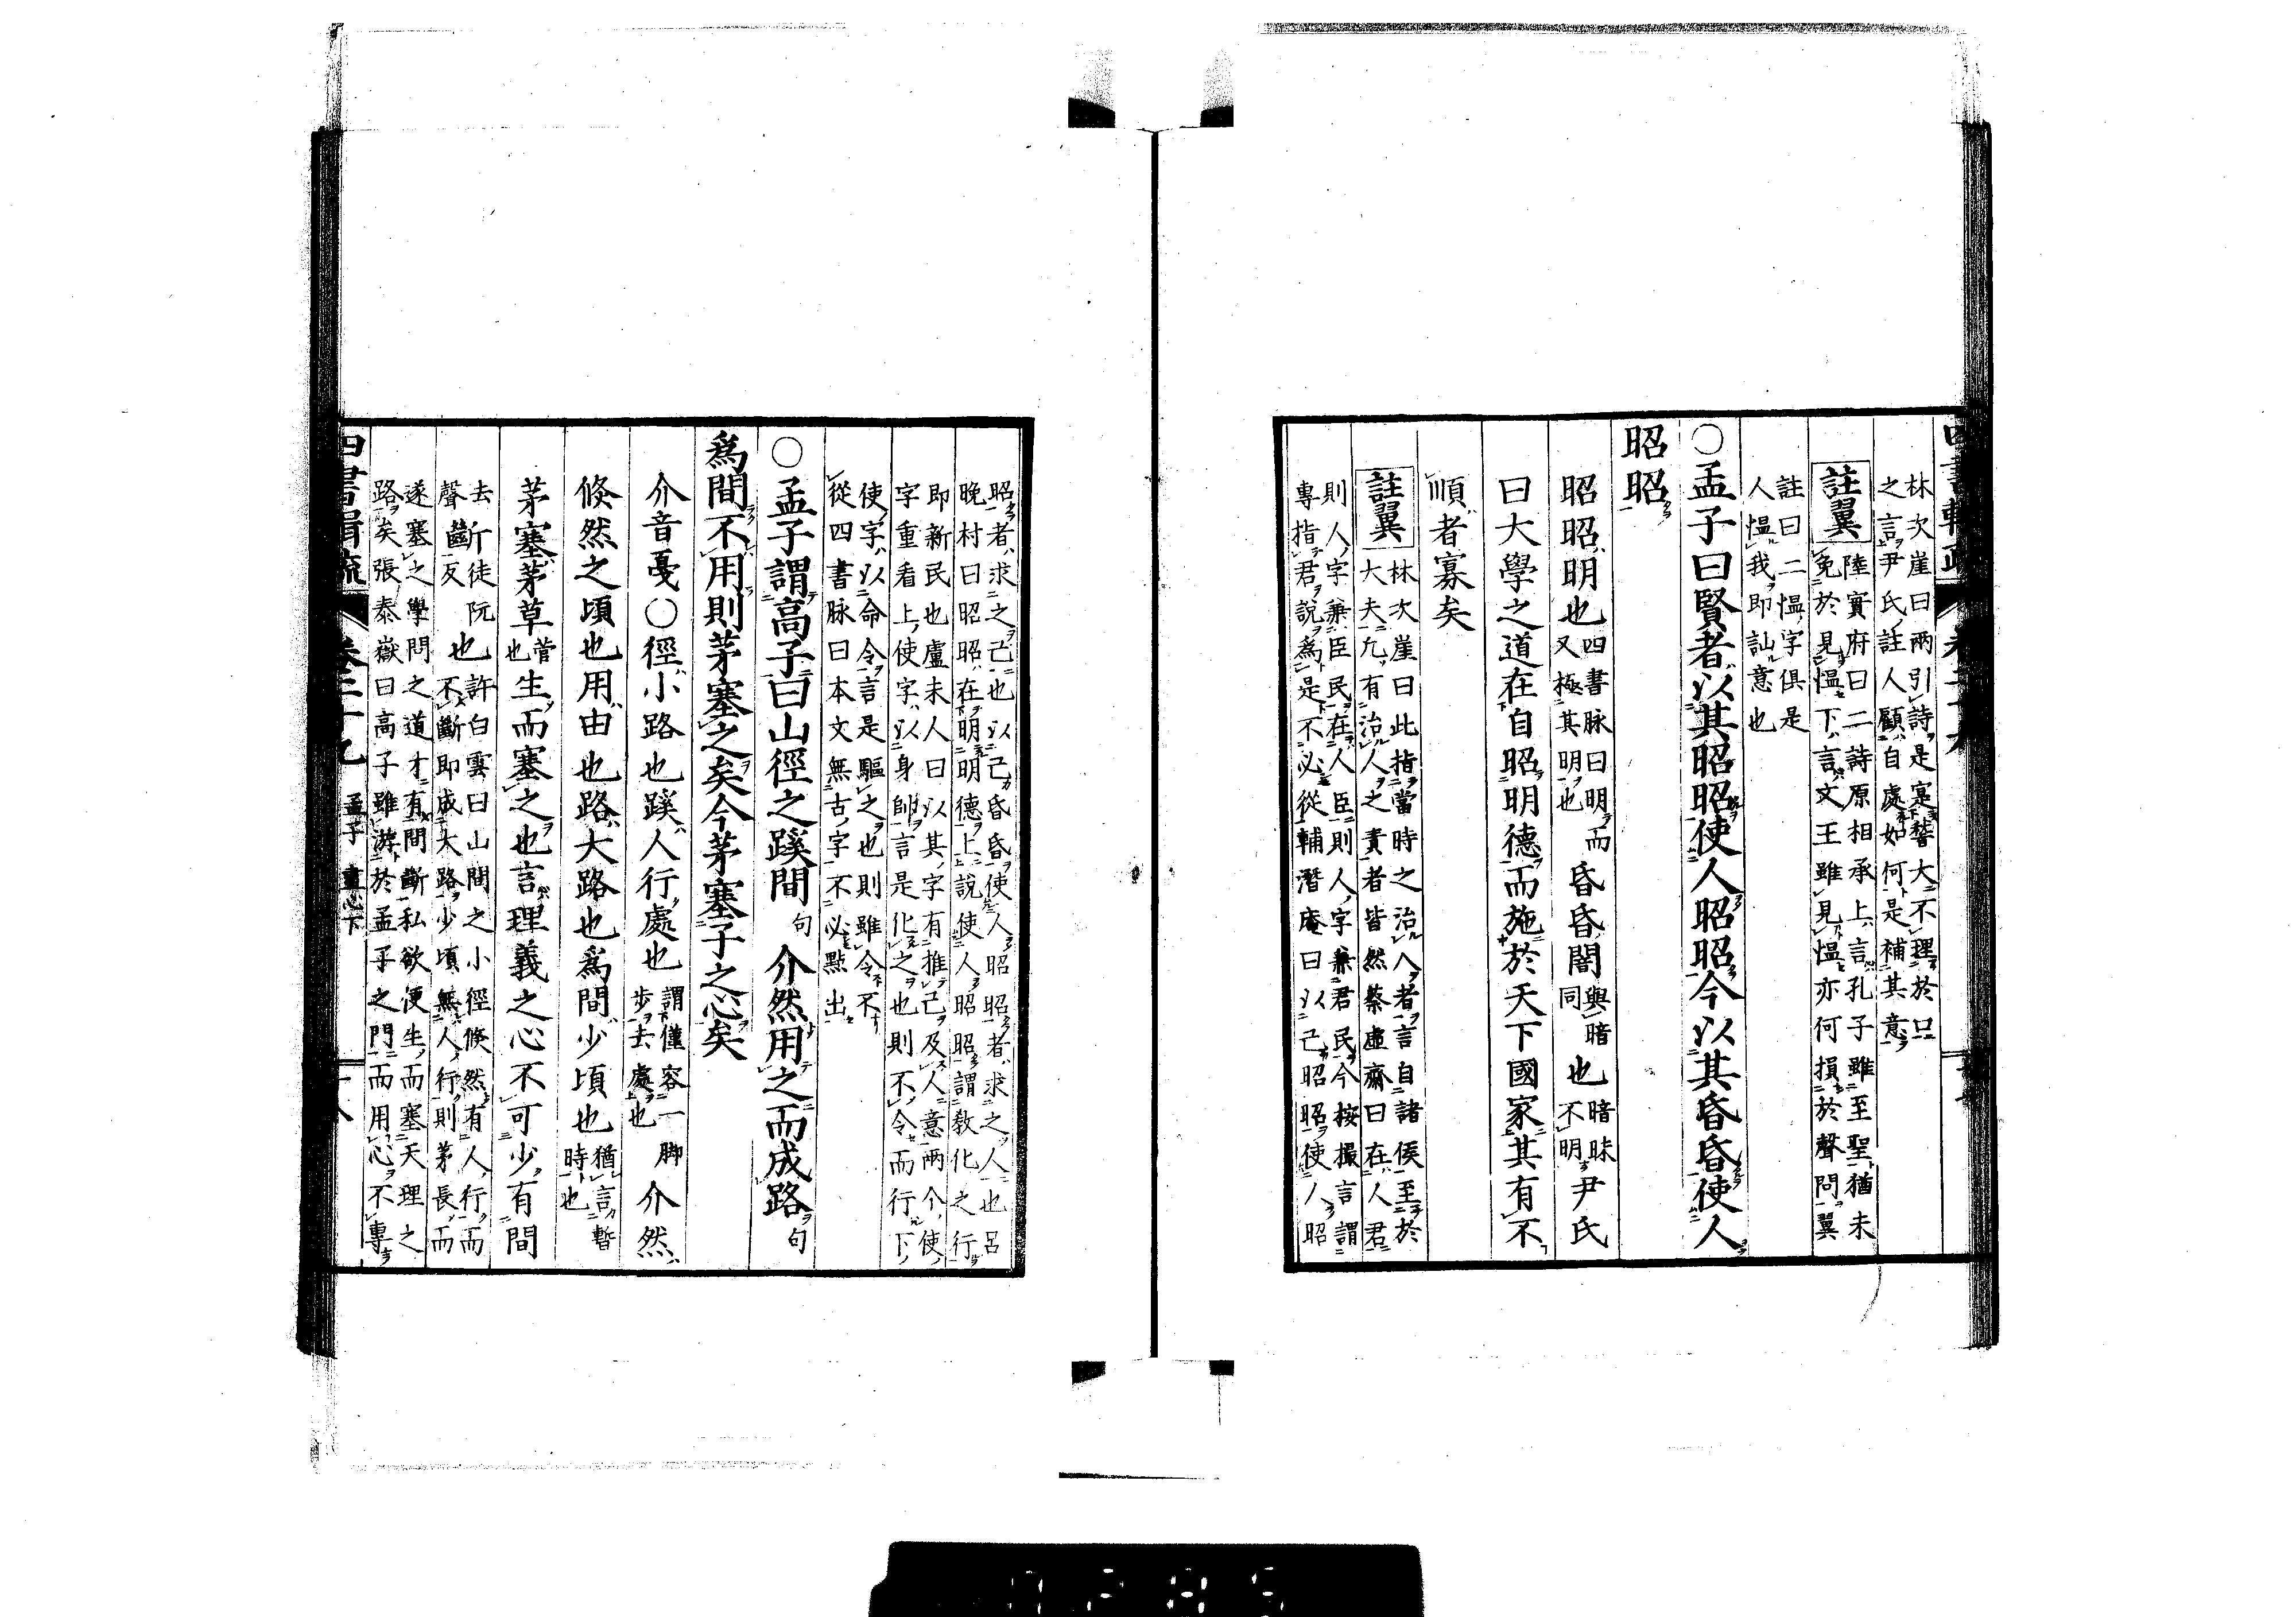 林次崖曰兩引詩是寔替大不理於口
之言尹氏註人顧自處如何是補其意
註翼
陸實府曰二詩原相承上言孔子雖至聖猶未
免於見慍下言文王雖見慍亦何損於聲問翼
註曰二慍字俱是
人慍我即訕意也
○孟子曰賢者以其昭昭使人昭昭今以其昏昏使人
昭昭
昭昭明也四書脉曰明而又極其明也昏昏闇與暗同也暗昧不明尹氏
曰大學之道在自昭明德而施於天下國家其有不
順者寡矣
註翼
林次崖曰此指當時之治人者言自諸侯至於
大夫凢有治人之責者皆然蔡虛齋曰在人君
則人字兼臣民在人臣則人字兼君民今按撮言謂
專指君說爲是不必從輔潛庵曰以己昭昭使人昭
昭者求之己也以己昏昏使人昭昭者求之人也呂
晚村曰昭昭在明明德上說使人昭昭謂教化之行
即新民也盧未人曰以其字有推己及人意兩个使
字重看上使字以身帥言是化之也則不令而行下
使字以命令言是驅之也則雖令不
從四書脉曰本文無古字不必點出
○孟子謂高子曰山徑之蹊間句介然用之而成路句
爲間不用則茅塞之矣今茅塞子之心矣
介音戞○徑小路也蹊人行處也謂僅容一脚步去處也介然
倐然之頃也用由也路大路也爲間少頃也猶言暫時也
茅塞茅草菅也生而塞之也言理義之心不可少有間
去聲斷徒阮反也許白雲曰山間之小徑倐然有人行而
不斷即成大路少頃無人行則茅長而
遂塞之學問之道才有間斷私欲便生而塞天理之
路矣張泰嶽曰高子雖游於孟子之門而用心不專
四書輯疏
孟子 盡心下